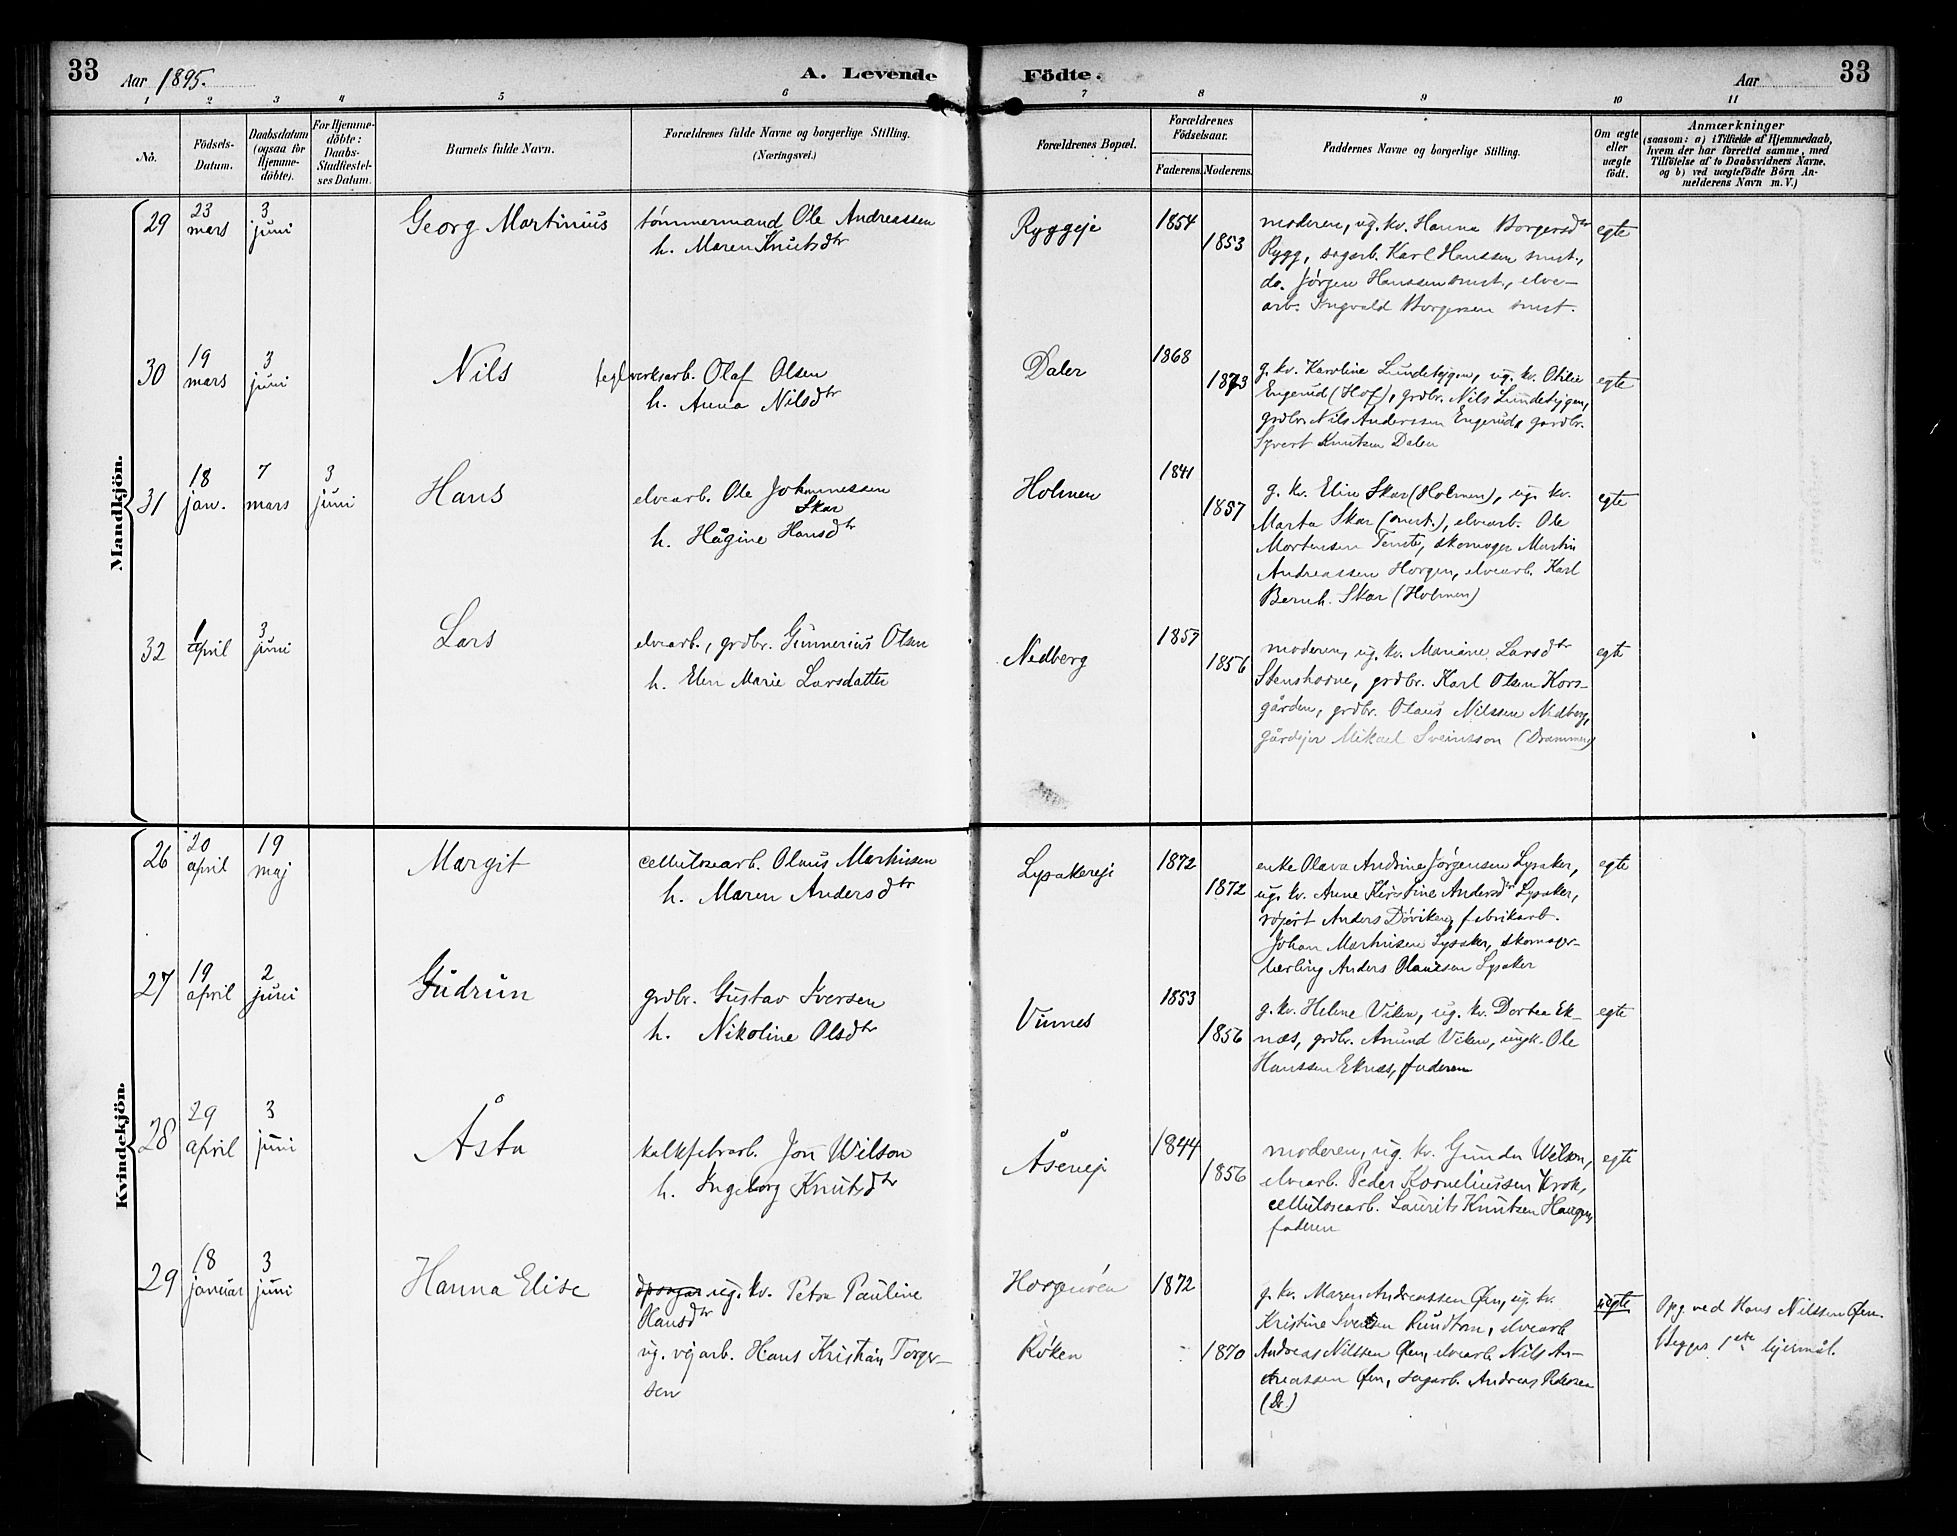 33
Aar 1895.
A. Levende
Födte.
Aar
33
1 2 3 4 5 6 7 8 9 10 11
No.
Födsels-
Datum.
Daabsdatum
(ogsaa for
Hjemme-
döbte).
For Hjemme-
döbte:
Daabs-
Stadfæstel-
ses Datum.
Barnets fulde Navn.
Forældrenes fulde Navne og borgerlige Stilling.
(Næringsvei.)
Forældrenes Bopæl.
Forældrenes
Födselsaar.
Faderens.
Moderens.
Faddernes Navne og borgerlige Stilling.
Om ægte
eller
uægte
födt.
Anmærkninger
(saasom: a) i Tilfælde af Hjemmedaab,
hvem der har forrettet samme, med
Tilföielse af to Daabsvidners Navne.
og b) ved uægtefödte Börn An-
melderens Navn m. V.)
Mandkjön.
29
23
mars
3
juni
Georg Martinius
tømmermand Ole Andreassen
h. Maren Knutsdtr
Ryggeje
1854
1853
moderen, ug. kv. Hanna Borgersdtr
Rygg, sagarb. Karl Hanssen smst.,
do. Jørgen Hanssen smst., elve-
arb. Ingvald Borgersen smst.
egte
30
19
mars
3
juni
Nils
teglverksarb. Olaf Olsen
h. Anna Nilsdtr
Daler
1868
1873
g. kv. Karoline Lundebygen, ug. kv. Otilie
Engerud (Hof), grdbr. Nils Lundebygen,
grdbr. Nils Anderssen Engerud, gardbr.
Syvert Knutsen Dalen
egte
31
18
jan.
7
mars
3
juni
Hans
elvearb. Ole Johannessen
Skar
h. Hågine Hansdtr
Holmen
1841
1857
g. kv. Elin Skar (Holmen), ug. kv.
Marta Skar (smst.), elvearb. Ole
Mortensen Tomte, skomager Martin
Andreassen Horgen, elvearb. Karl
Bernh. Skar (Holmen)
egte
32
1
april
3
juni
Lars
elvearb., grdbr. Gunnerius Olsen
h. Elen Marie Larsdatter
Nedberg
1857
1856
moderen, ug. kv. Mariane Larsdtr
Stenshorne, grdbr. Karl Olsen Kors-
gården, grdbr. Olaus Nilssen Nedberg,
gårdejer Mikael Sveinsson (Drammen)
egte
Kvindekjön.
26
20
april
19
maj
Margit
cellulosearb. Olaus Martinsen
h. Maren Andersdtr
Lysakereje
1872
1872
enke Olava Andrine Jørgensen Lysaker,
ug. kv. Anne Kirstine Andersdtr Lysaker,
Anders Døviken, fabrikarb.
Johan Martinsen Lysaker, skomager-
lærling Anders Olaussen Lysaker
egte
27
19
april
2
juni
Gudrun
grdbr. Gustav Iversen
h. Nikoline Olsdtr
Vinnes
1853
1856
g. kv. Helene Viken, ug. kv. Dortea Ek-
næs, grdbr. Amund Viken, ungk. Ole
Hanssen Eknæs, faderen
egte
28
29
april
3
juni
Åsta
kalkfabrarb. Jon Wilson
h. Ingeborg Knutsdtr
Åseneje
1844
1856
moderen, ug. kv. Gunda Wilson,
elvearb. Peder Korneliussen Krok,
cellulosearb. Laurits Knutsen Haugen,
faderen
egte
29
18
januar
3
juni
Hanna Elise
ug. kv. Petra Pauline
Hansdtr
ug. vejarb. Hans Kristian Torger-
sen
Horgenøen
Røken
1872
1870
g. kv. Maren Andreassen Øen, ug. kv.
Kristine Svensen Rundtom, elvearb
Andreas Nilssen Øen, elvearb. Nils An-
dreassen Øen, sagarb. Andreas Pedersen
(Dr.)
uegte
Opg. ved Hans Nilssen Øen.
Begges 1ste lejermål.